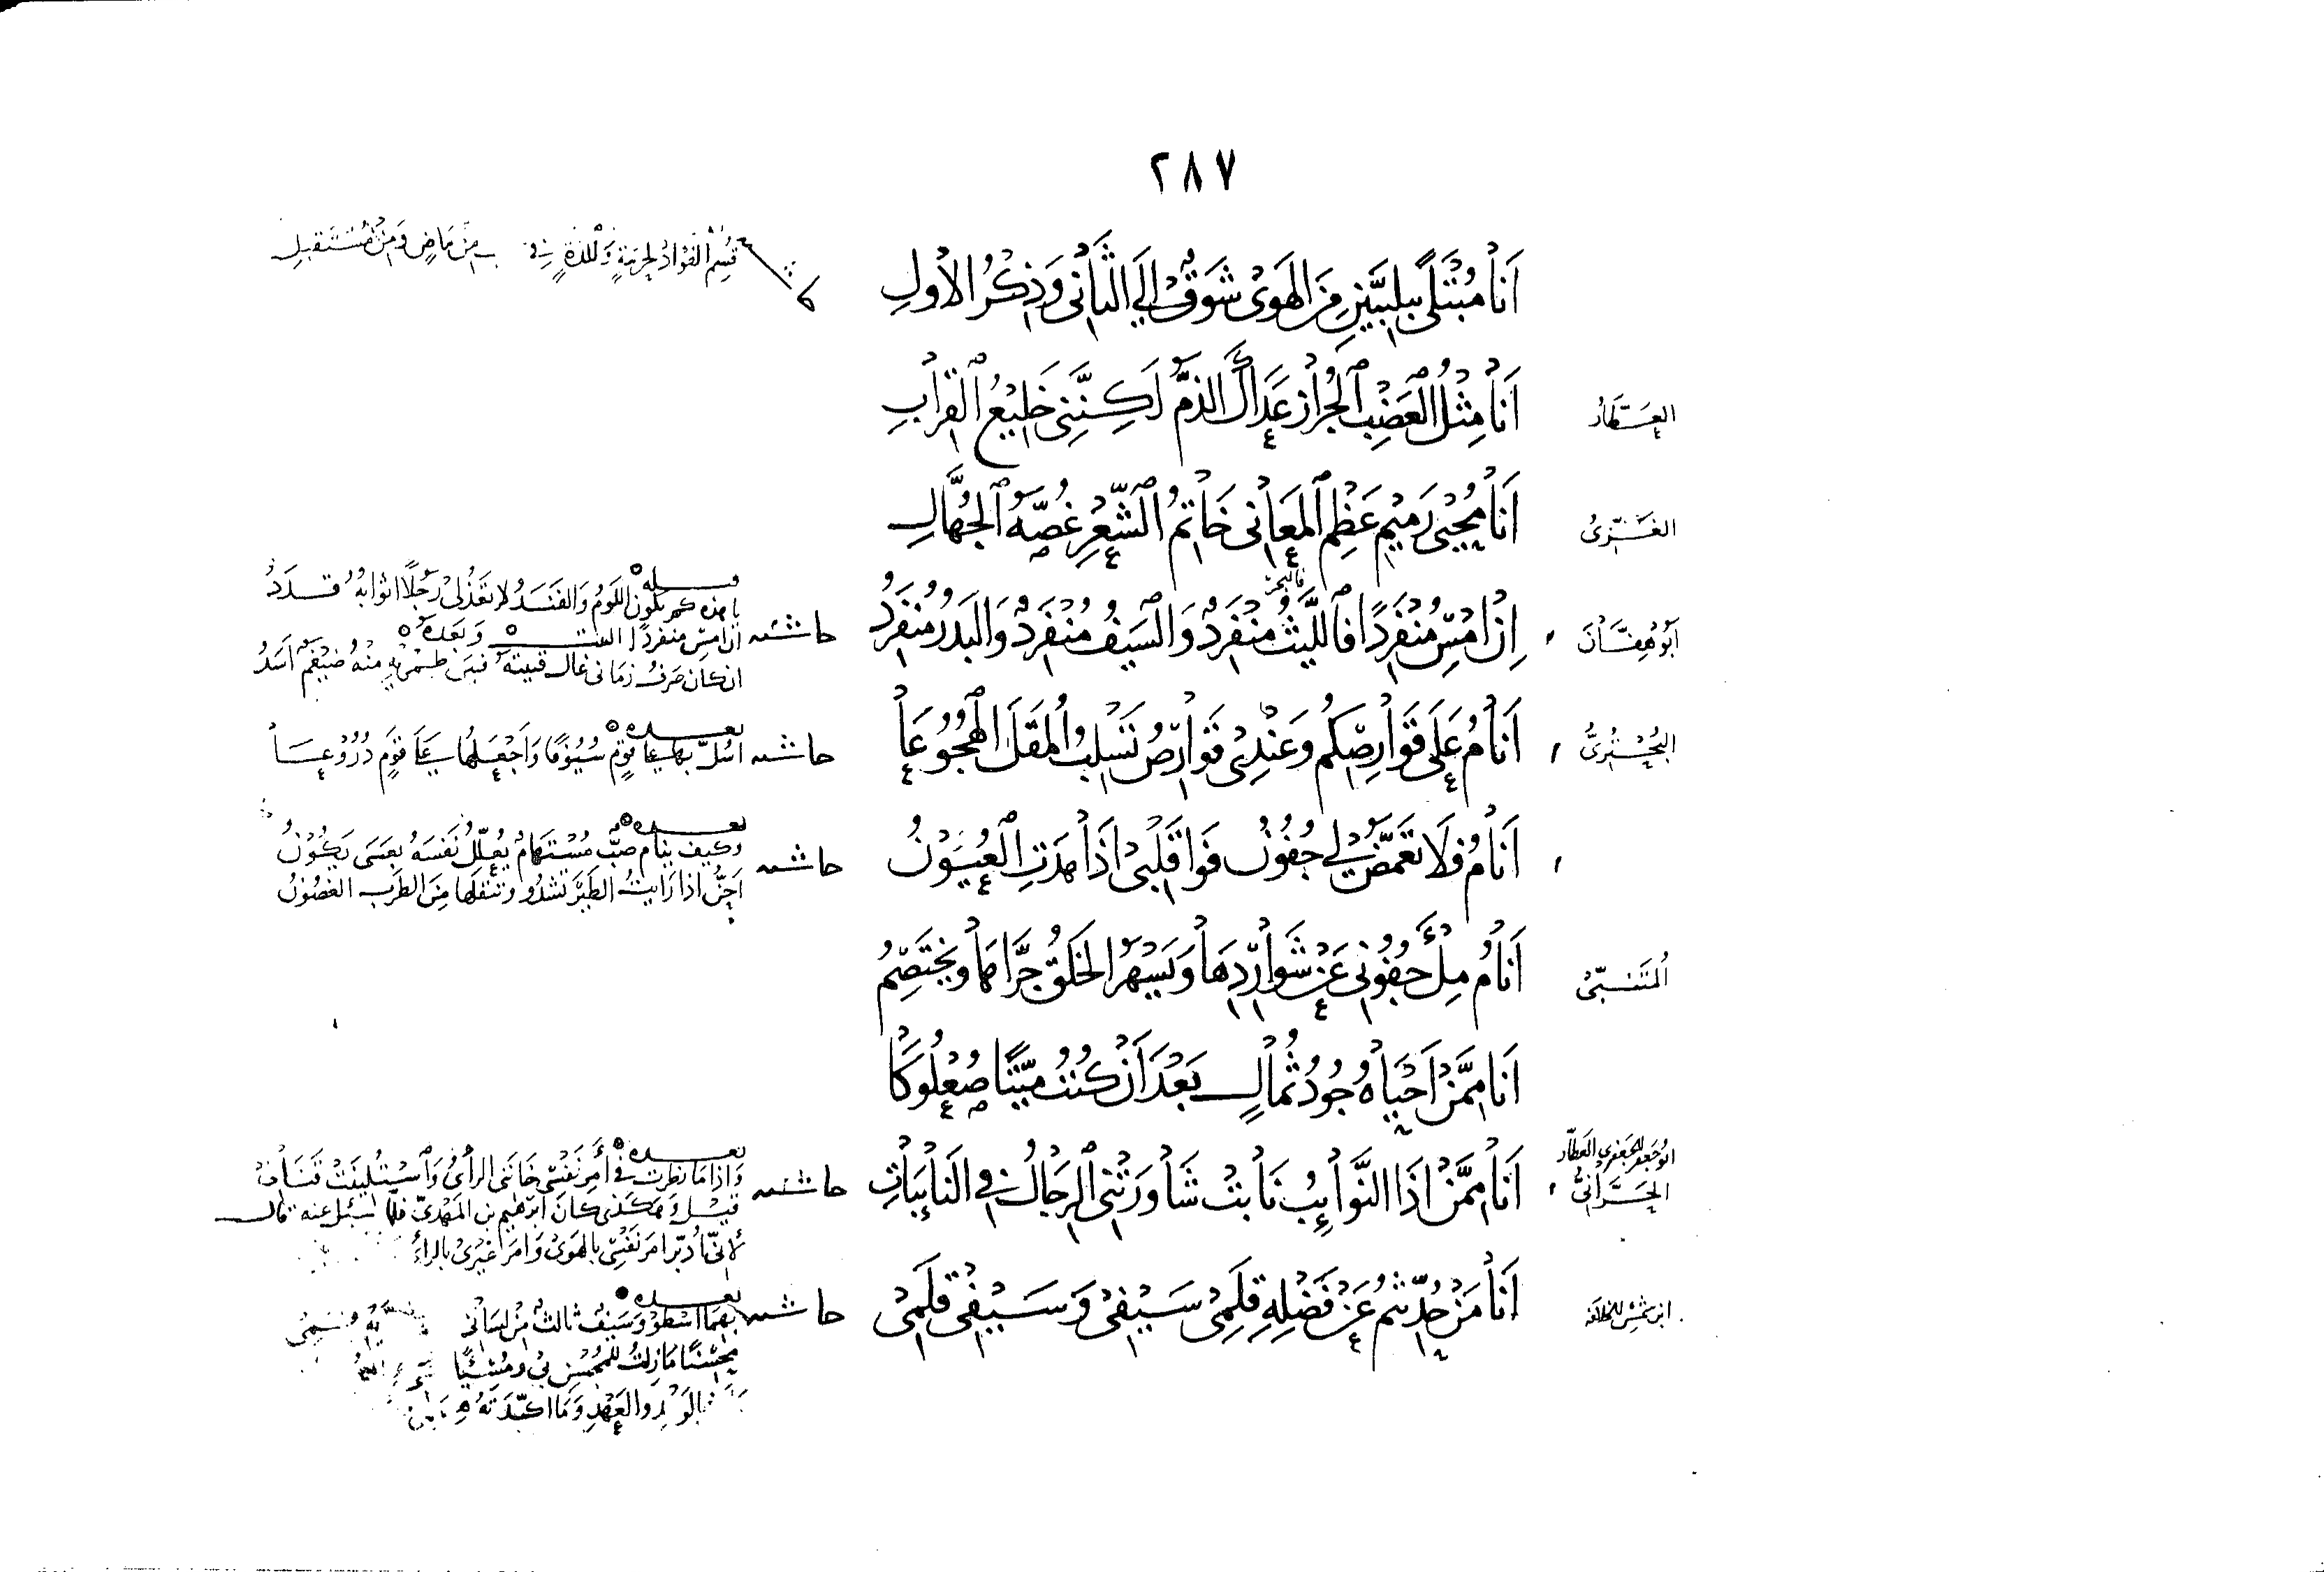 ٢٨٧
أَنَا مُبْتَلًى بِبَلِيَّتَيْنِ مِنَ الهَوَىْ شَوْقٌ إِلَى الثَّانِى وَذِكْرُ الأَوَّلِ
قُسِمَ الفُؤَادُ لِحُرْمَةٍ وَلِلَذَّةٍ فِى مِنْ مَاضٍ وَمِنْ مُسْتَقْبِلِ
العَطَّارُ
أَنَا مِثْلُ العَضْبِ الجُرَازِ عَدَاكَ الذَّمُّ لَكِنَّنِى خَلِيْعُ القِرَابِ
الغَزِّىُّ
أَنَا مُحْيِى رَمِيْمِ عَظْمِ المَعَانِى خَاتَمُ الشِّعْرِ غُصَّةُ الجُهَّالِ
أَبُو هِفَّانَ
إِنْ أُمْسِ مُنْفَرِدًا فَاللَّيْثُ مُنْفَرِدٌ وَالسَّيْفُ مُنْفَرِدٌ وَالبَدْرُ مُنْفَرِدُ
حاشية
قبله
يا هذه كم يكون اللَّوْمُ وَالفَنَدُ لا تَعْذُلِى رَجُلًا أثوابُهُ قِدَدُ
ان امسِ منفردًا البيت وَبَعْدَهُ
ان كان صَرفُ زمانى غال فبين طمريه منْهُ ضيْغَمٌ أسَدُ
البُحْتُرِىُّ
أَنَامُ عَلَى قَوَارِصِكُمْ وَعِنْدِىْ قَوَارِصُ تَسْلُبُ المُقَلَ الهُجُوْعَا
حاشية
بعده
اسُلُّ بها عَلَى قَوْمٍ سُيُوْفًا وَاَجْعَلُهَا عَلَى قَوْمٍ دُرُوْعَا
أَنَامُ فَلَا تُغَمَّضُ لِى جُفُوْنُ فَوَا قَلْبِىْ اِذَا هَدَتِ العُيُوْنُ
حاشية
بعده
وكيف ينام صَبٌّ مُسْتَهَامٌ يُعَلِّلُ نَفْسَهُ بِعَسَى يَكُوْنُ
اَحِنُّ اذا رَايتُ الطَيْرَ تَشْدُو وتنقلها مِنَ الطَرَبِ الغصُوْنُ
المُتَنَبِّىْ
أَنَامُ مِلْءَ جُفُوْنِى عَنْ شَوَارِدِهَا وَيَسْهَرُ الخَلْقُ جَرَّاهَا وَيَخْتَصِمُ
أَنَا مِمَّنْ اَحْيَاهُ جُوْدُ ثُمَالٍ بَعْدَ اَنْ كُنْتُ مَيِّتًا صُعْلُوْكَا
ابُو جَعْفَر الجعفرى العَطَّار
الحَرَّانِىُّ
أَنَا مِمَّنْ اِذَا النَّوَائِبُ نَابَتْ شَاوَرَتْنِى الرِّجَالُ فِى النَّائِبَاتِ
حاشية
بعده
وَاِذَا مَا نَظَرْتُ فِى أَمْرِ نَفْسِى خَانَنِى الرَأْىُ وَاسْتُلِيْنَتْ قَنَاتِى
قيْلَ وَهكَذى كان ابْرَهِيم بن المَهْدِىّ فلمّا سُئِلَ عنه قال
لأنّى اُدَبِّرُ امرَ نَفْسِى بالهَوَىْ وَامرَ غَيْرِىْ بالراْىِ
ابن شَمْسِ الخلافَة
أَنَا مَنْ حُدِّثْتُمْ عَنْ فَضْلِهِ قَلَمِىْ سَيْفِىْ وَسَيْفِىْ قَلَمِىْ
حاشية
بعده
بِهِمَا اَسْطُوْ وَسَيْفٌ ثَالثٌ مِنْ لِسَانِى
مُحْسِنًا مَا زِلْتُ لِلْمُحْسِنِ بِى وَمُسِيْئًا
والعَهْدِ وَمَا